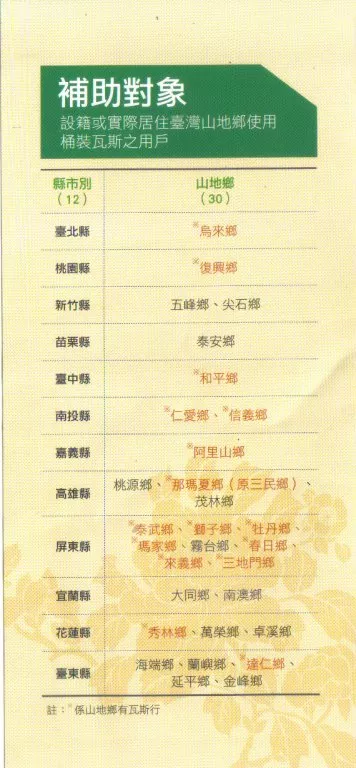 補助對象
設籍或實際居住臺灣山地鄉使用
桶裝瓦斯之用戶
縣市別 山地鄉
(12) (30)
臺北縣 ※烏來鄉
桃園縣 ※復興鄉
新竹縣 五峰鄉、尖石鄉
苗栗縣 泰安鄉
臺中縣 ※和平鄉
南投縣 ※仁愛鄉、※信義鄉
嘉義縣 ※阿里山鄉
高雄縣 桃源鄉、※那瑪夏鄉(原三民鄉)、
茂林鄉
屏東縣 ※泰武鄉、※獅子鄉、※牡丹鄉、
※瑪家鄉、霧台鄉、※春日鄉、
※來義鄉、※三地門鄉
宜蘭縣 大同鄉、南澳鄉
花蓮縣 ※秀林鄉、萬榮鄉、卓溪鄉
臺東縣 海端鄉、蘭嶼鄉、※達仁鄉、
延平鄉、金峰鄉
註:※係山地鄉有瓦斯行